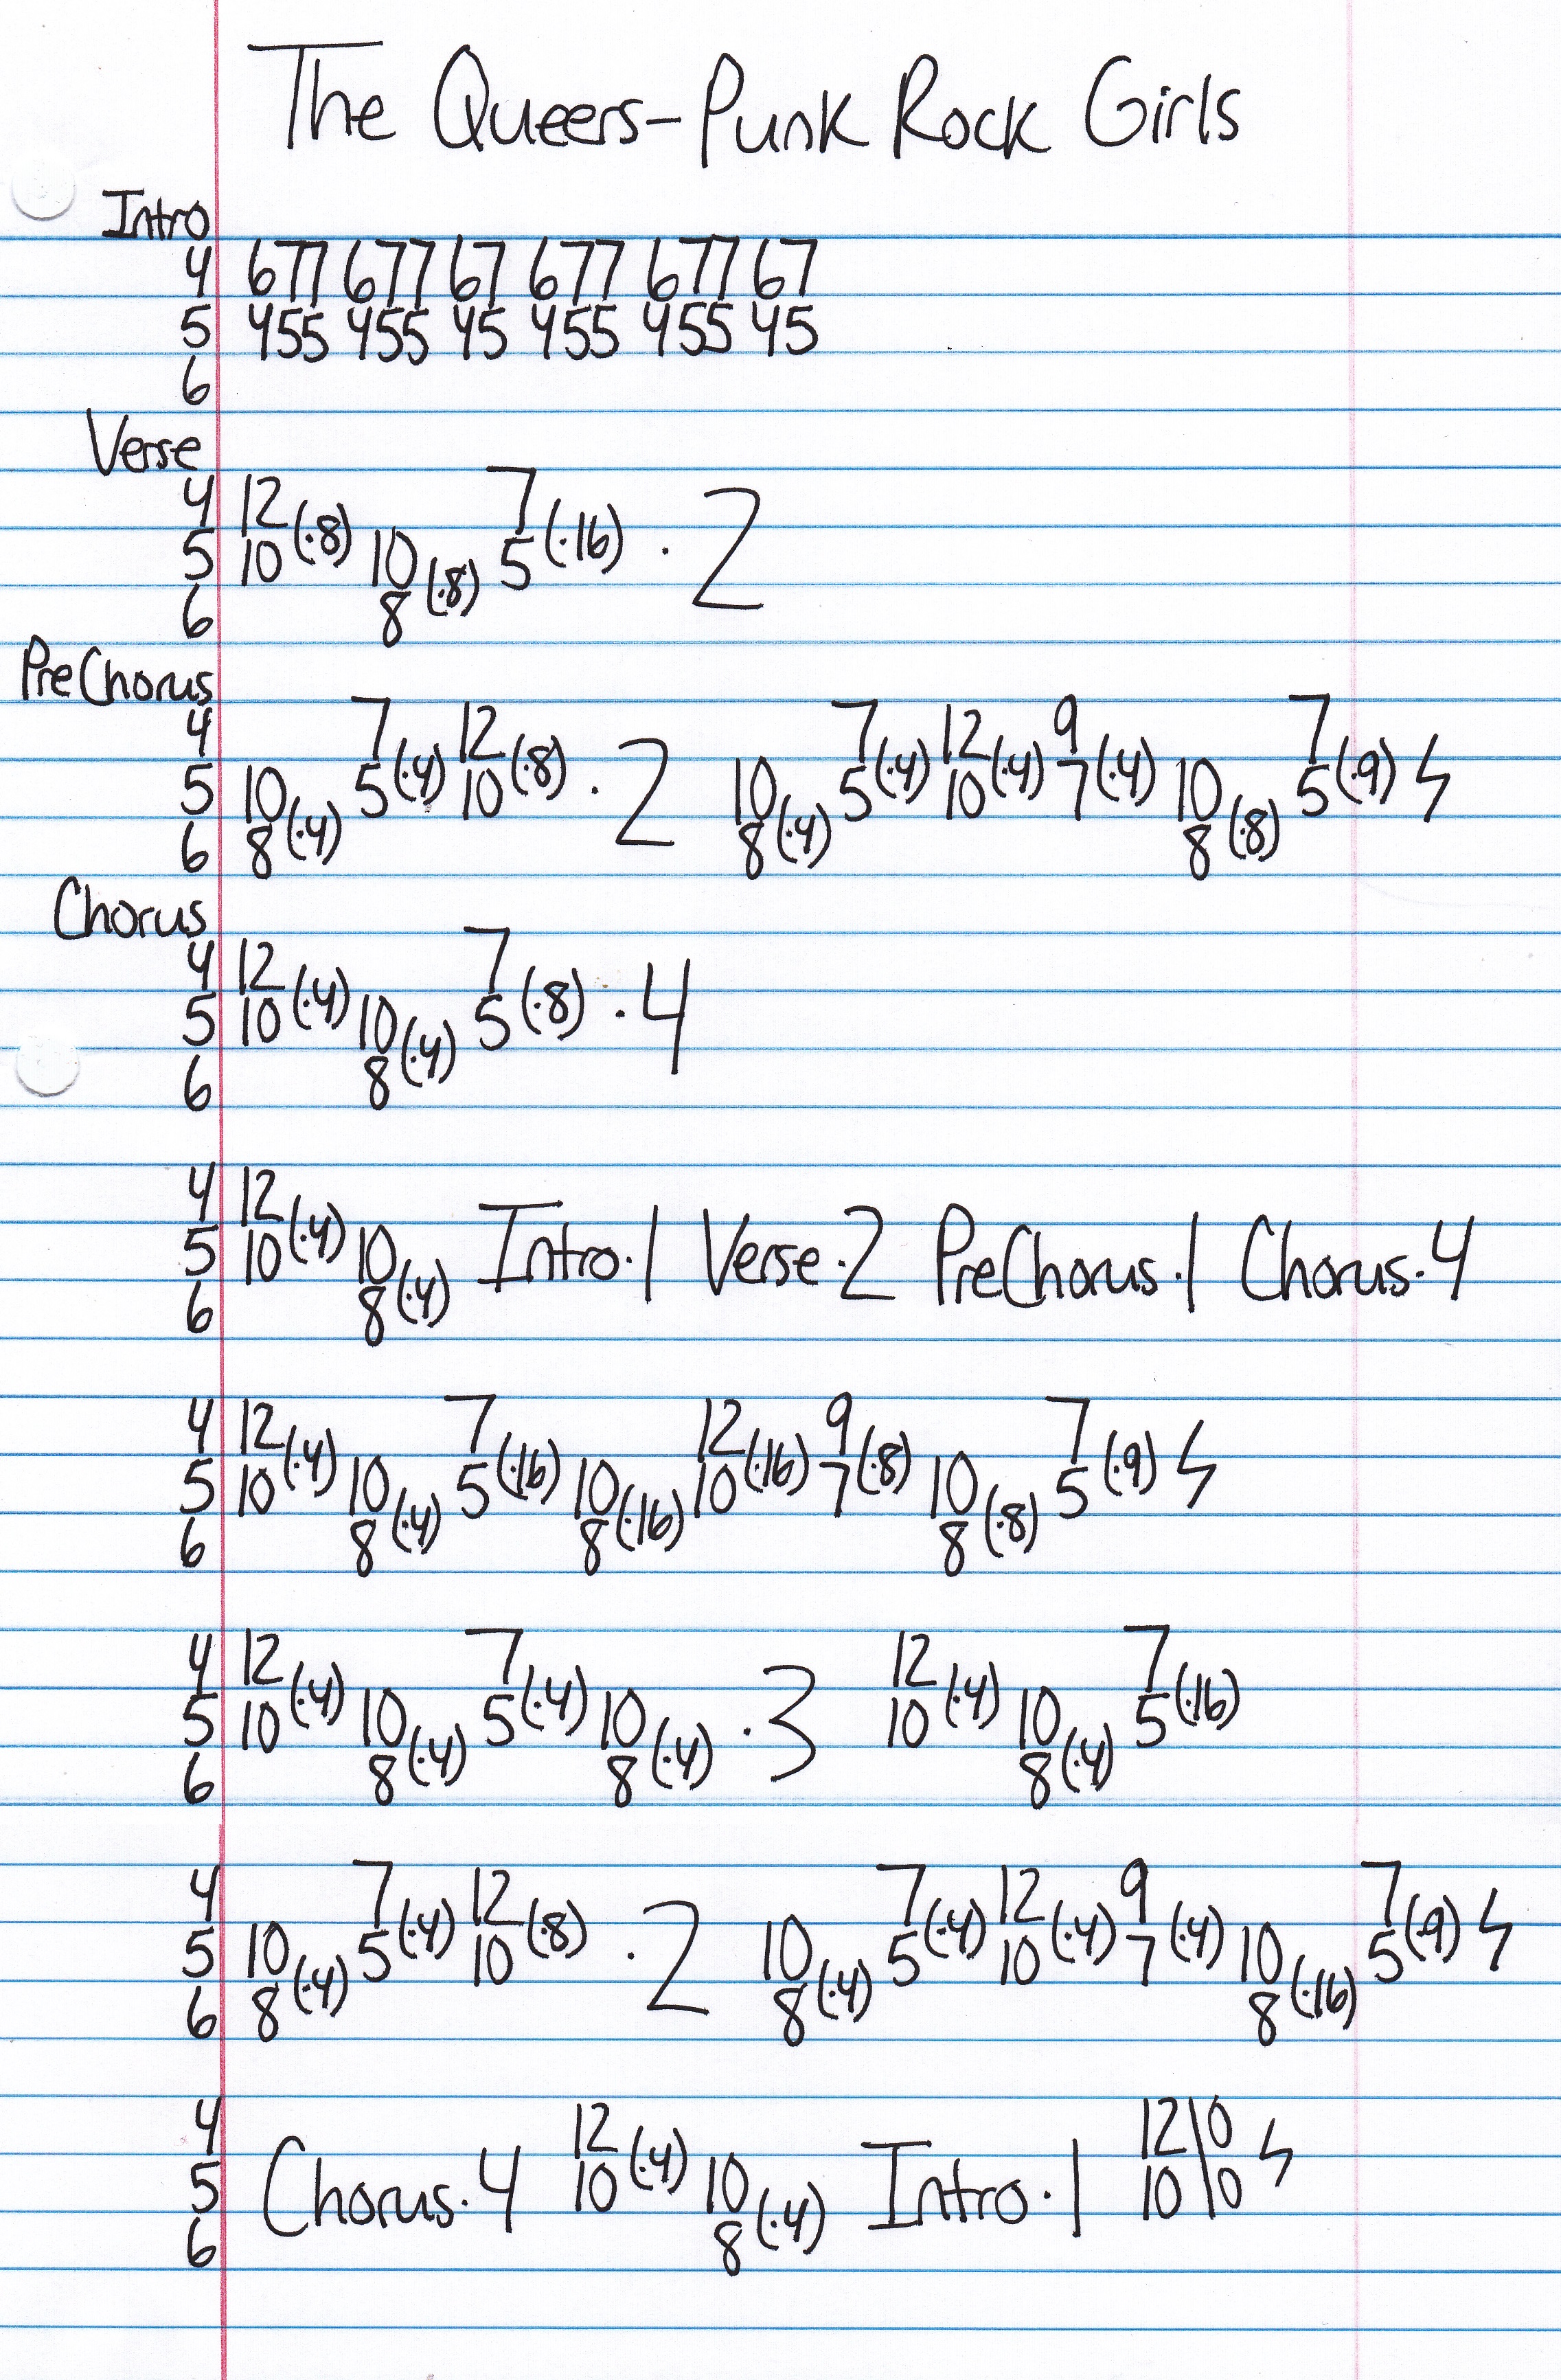 The Queers-Punk Rock Girls
Intro
4 677 677 67 677 677 67
5 455 455 45 455 455 45
6
Verse
4 12 7
5 10 (·8) 10 5 (·16) · 2
6 8 (·8)
PreChorus
4 7 12 7 12 9 7
5 10 5 (·4) 10 (·8) · 2 10 5 (·4) 10 (·4) 7 (·4) 10 5 (·9) ϟ
6 8 (·4) 8 (·4) 8 (·8)
Chorus
4 12 7
5 10 (·4) 10 5 (·8) · 4
6 8 (·4)
4 12
5 10 (·4) 10 Intro·1 Verse·2 PreChorus·1 Chorus·4
6 8 (·4)
4 12 7 12 9 7
5 10 (·4) 10 5 (·16) 10 10 (·16) 7 (·8) 10 5 (·9) ϟ
6 8 (·4) 8 (·16) 8 (·8)
4 12 7 12 7
5 10 (·4) 10 5 (·4) 10 · 3 10 (·4) 10 5 (·16)
6 8 (·4) 8 (·4) 8 (·4)
4 7 12 7 12 9 7
5 10 5 (·4) 10 (·8) · 2 10 5 (·4) 10 (·4) 7 (·4) 10 5 (·9) ϟ
6 8 (·4) 8 (·4) 8 (·16)
4 12 12\0
5 Chorus·4 10 (·4) 10 Intro·1 10\0 ϟ
6 8 (·4)